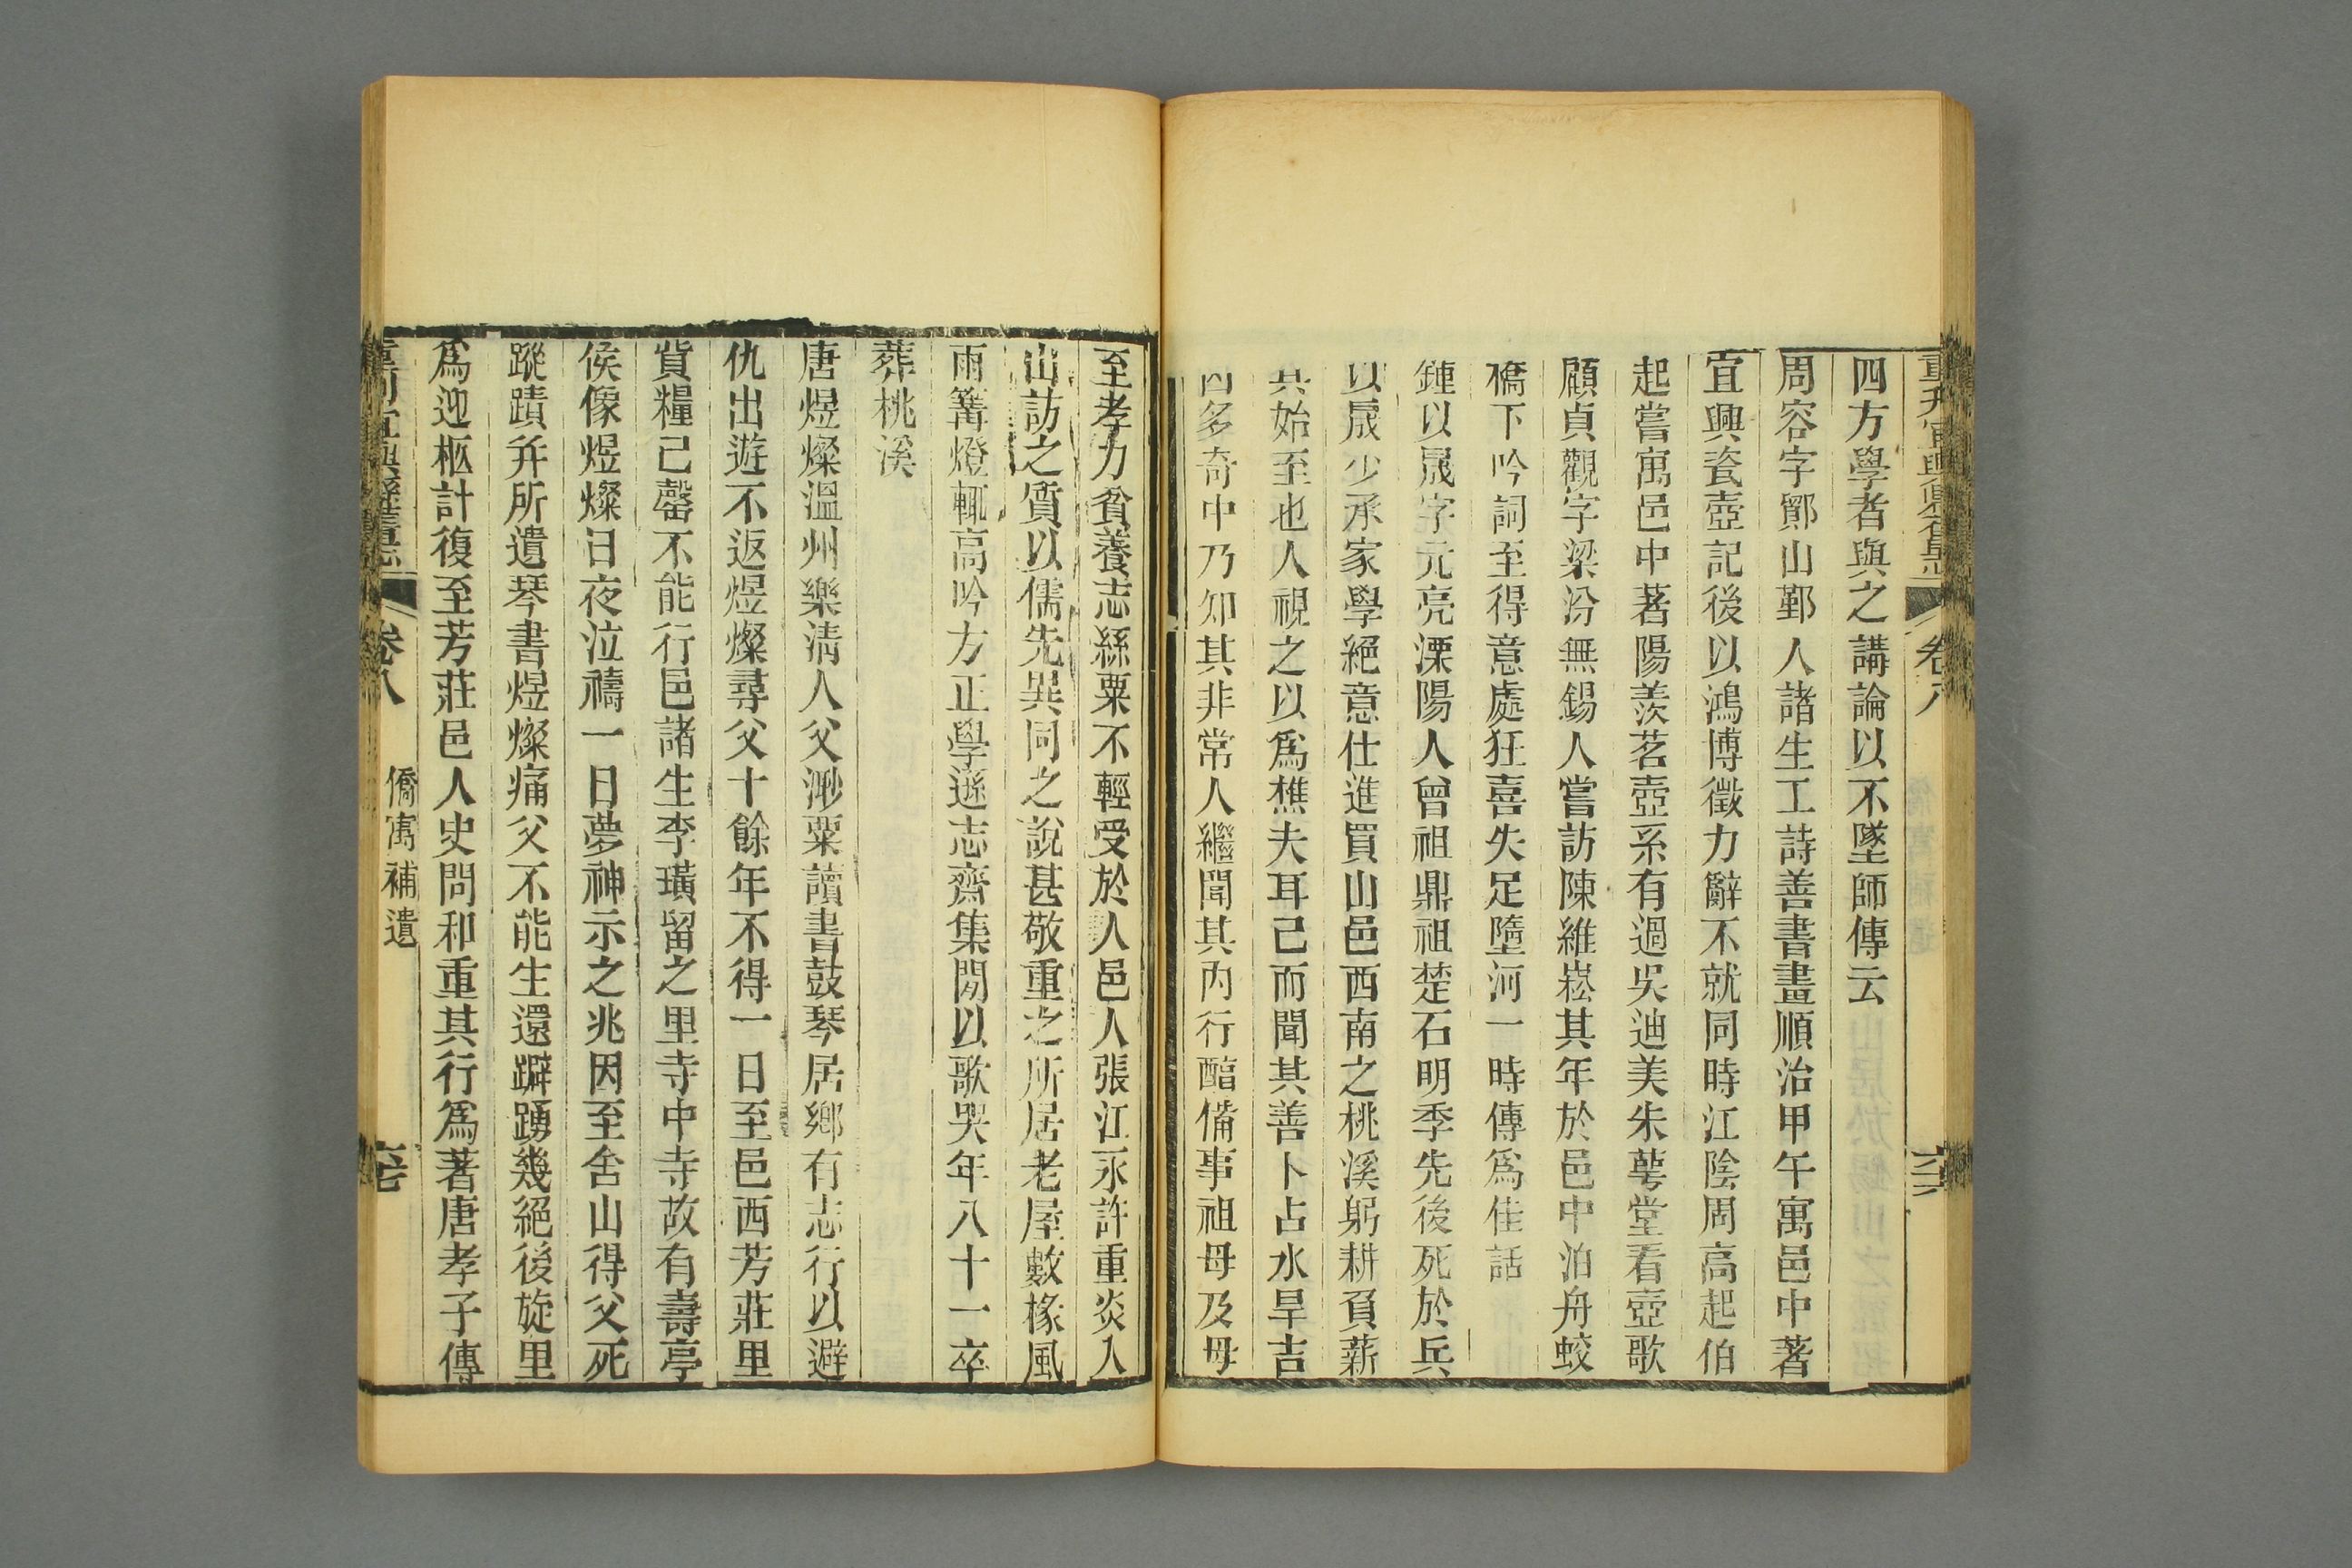 四方學者與之講論以不墜師傳云
周容字鄮山鄞人諸生工詩善書畫順治甲午寓邑中著
宜興瓷壺記後以鴻博徵力辭不就同時江陰周高起伯
起嘗寓邑中著陽羨茗壺系有過吳迪美朱萼堂看壺歌
顧貞觀字梁汾無錫人嘗訪陳維崧其年於邑中泊舟蛟
橋下吟詞至得意處狂喜失足墮河一時傳爲佳話
鍾以晟字元亮溧陽人曾祖鼎祖楚石明季先後死於兵
以晟少承家學絕意仕進買山邑西南之桃溪躬耕負薪
其始至也人視之以爲樵夫耳己而聞其善卜占水旱吉
凶多奇中乃知其非常人繼聞其內行醕備事祖母及母
至孝力貧養志絲粟不輕受於人邑人張江永許重炎入
山訪之質以儒先異同之說甚敬重之所居老屋數椽風
雨篝燈輒高吟方正學遜志齋集閒以歌哭年八十一卒
葬桃溪
唐煜燦溫州樂清人父渺粟讀書鼓琴居鄉有志行以避
仇出遊不返煜燦尋父十餘年不得一日至邑西芳莊里
貲糧己罄不能行邑諸生李璜留之里寺中寺故有壽亭
侯像煜燦日夜泣禱一日夢神示之兆因至舍山得父死
蹤蹟幷所遺琴書煜燦痛父不能生還躃踴幾絕後旋里
爲迎柩計復至芳莊邑人史問和重其行爲著唐孝子傳
卷八
僑寓補遺